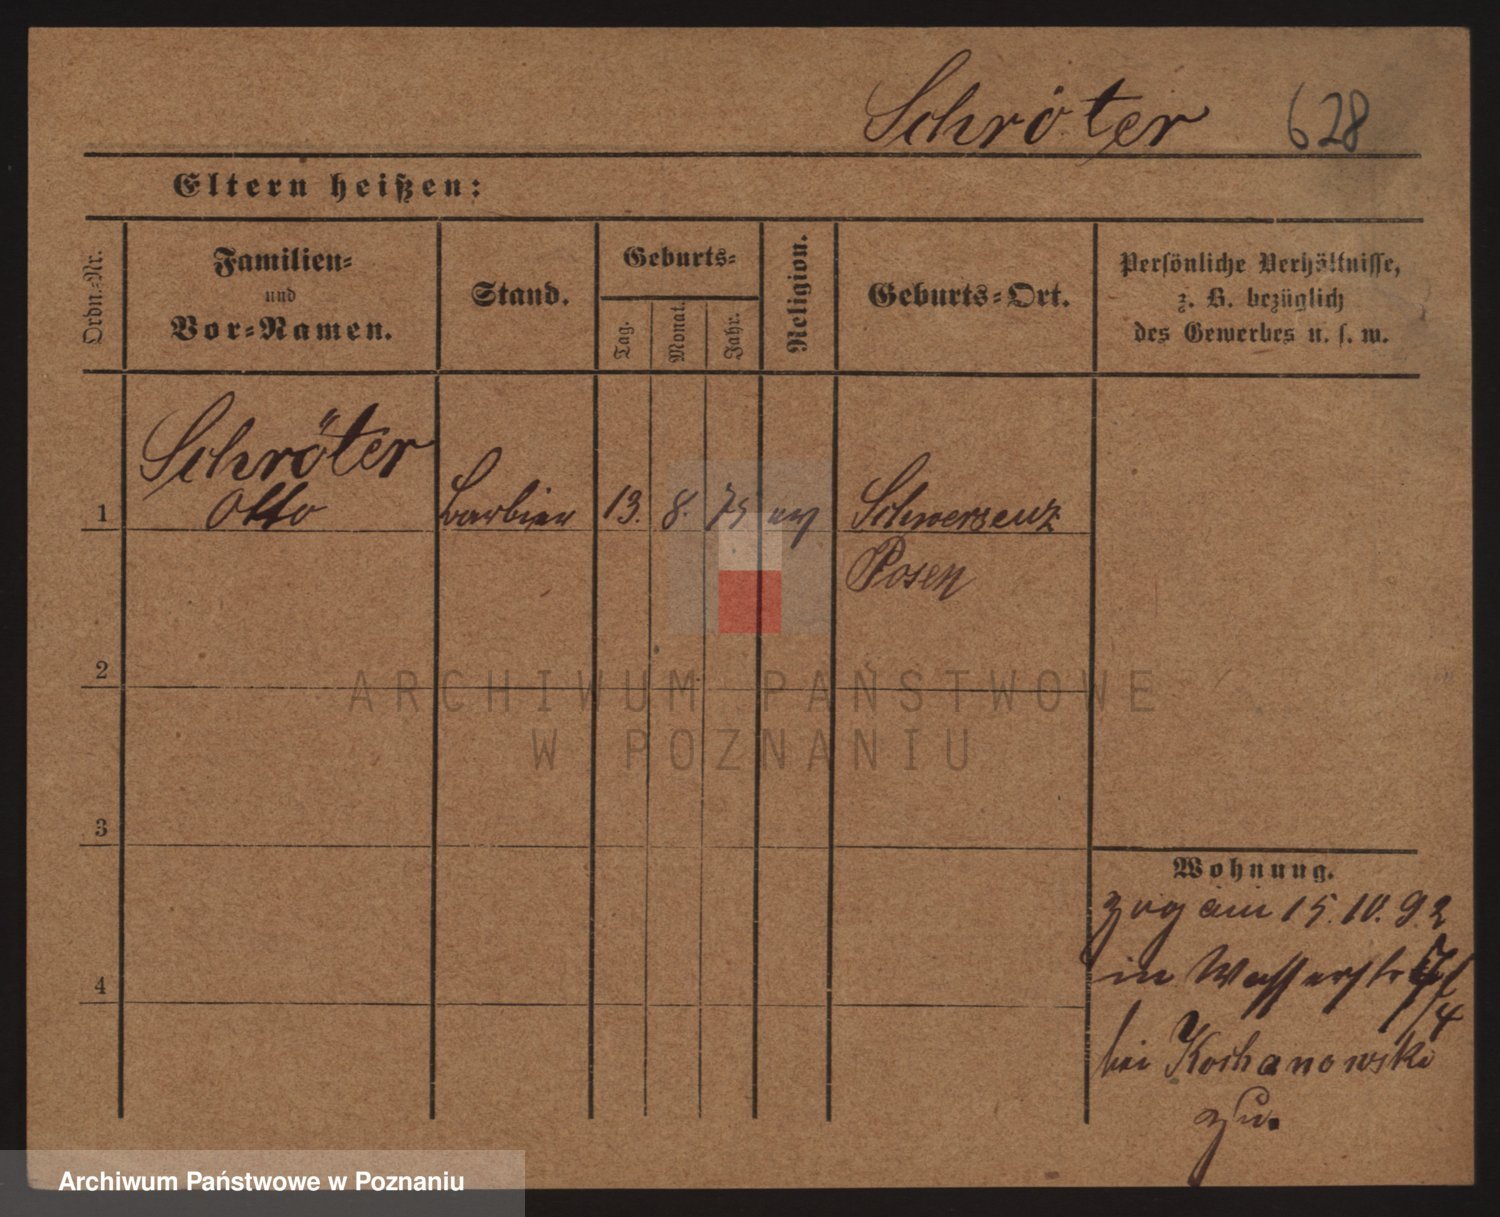 Schröter 628
Eltern heißen:
Ordn.-Nr.
Familien-
und
Vor-Namen.
Stand.
Geburts-
Tag.
Monat.
Jahr.
Religion.
Geburts-Ort.
Persönliche Verhältnisse,
z. B. bezüglich
des Gewerbes u. s. w.
Schröter
1 Otto Barbier 13. 8. 75 ev Schwersenz
Posen
2
ARCHIWUM PAŃSTWOWE
W POZNANIU
3
Wohnung.
zog am 15. 10. 92
4
in Wasserstr
bei Kochanowski
zu.
Archiwum Państwowe w Poznaniu